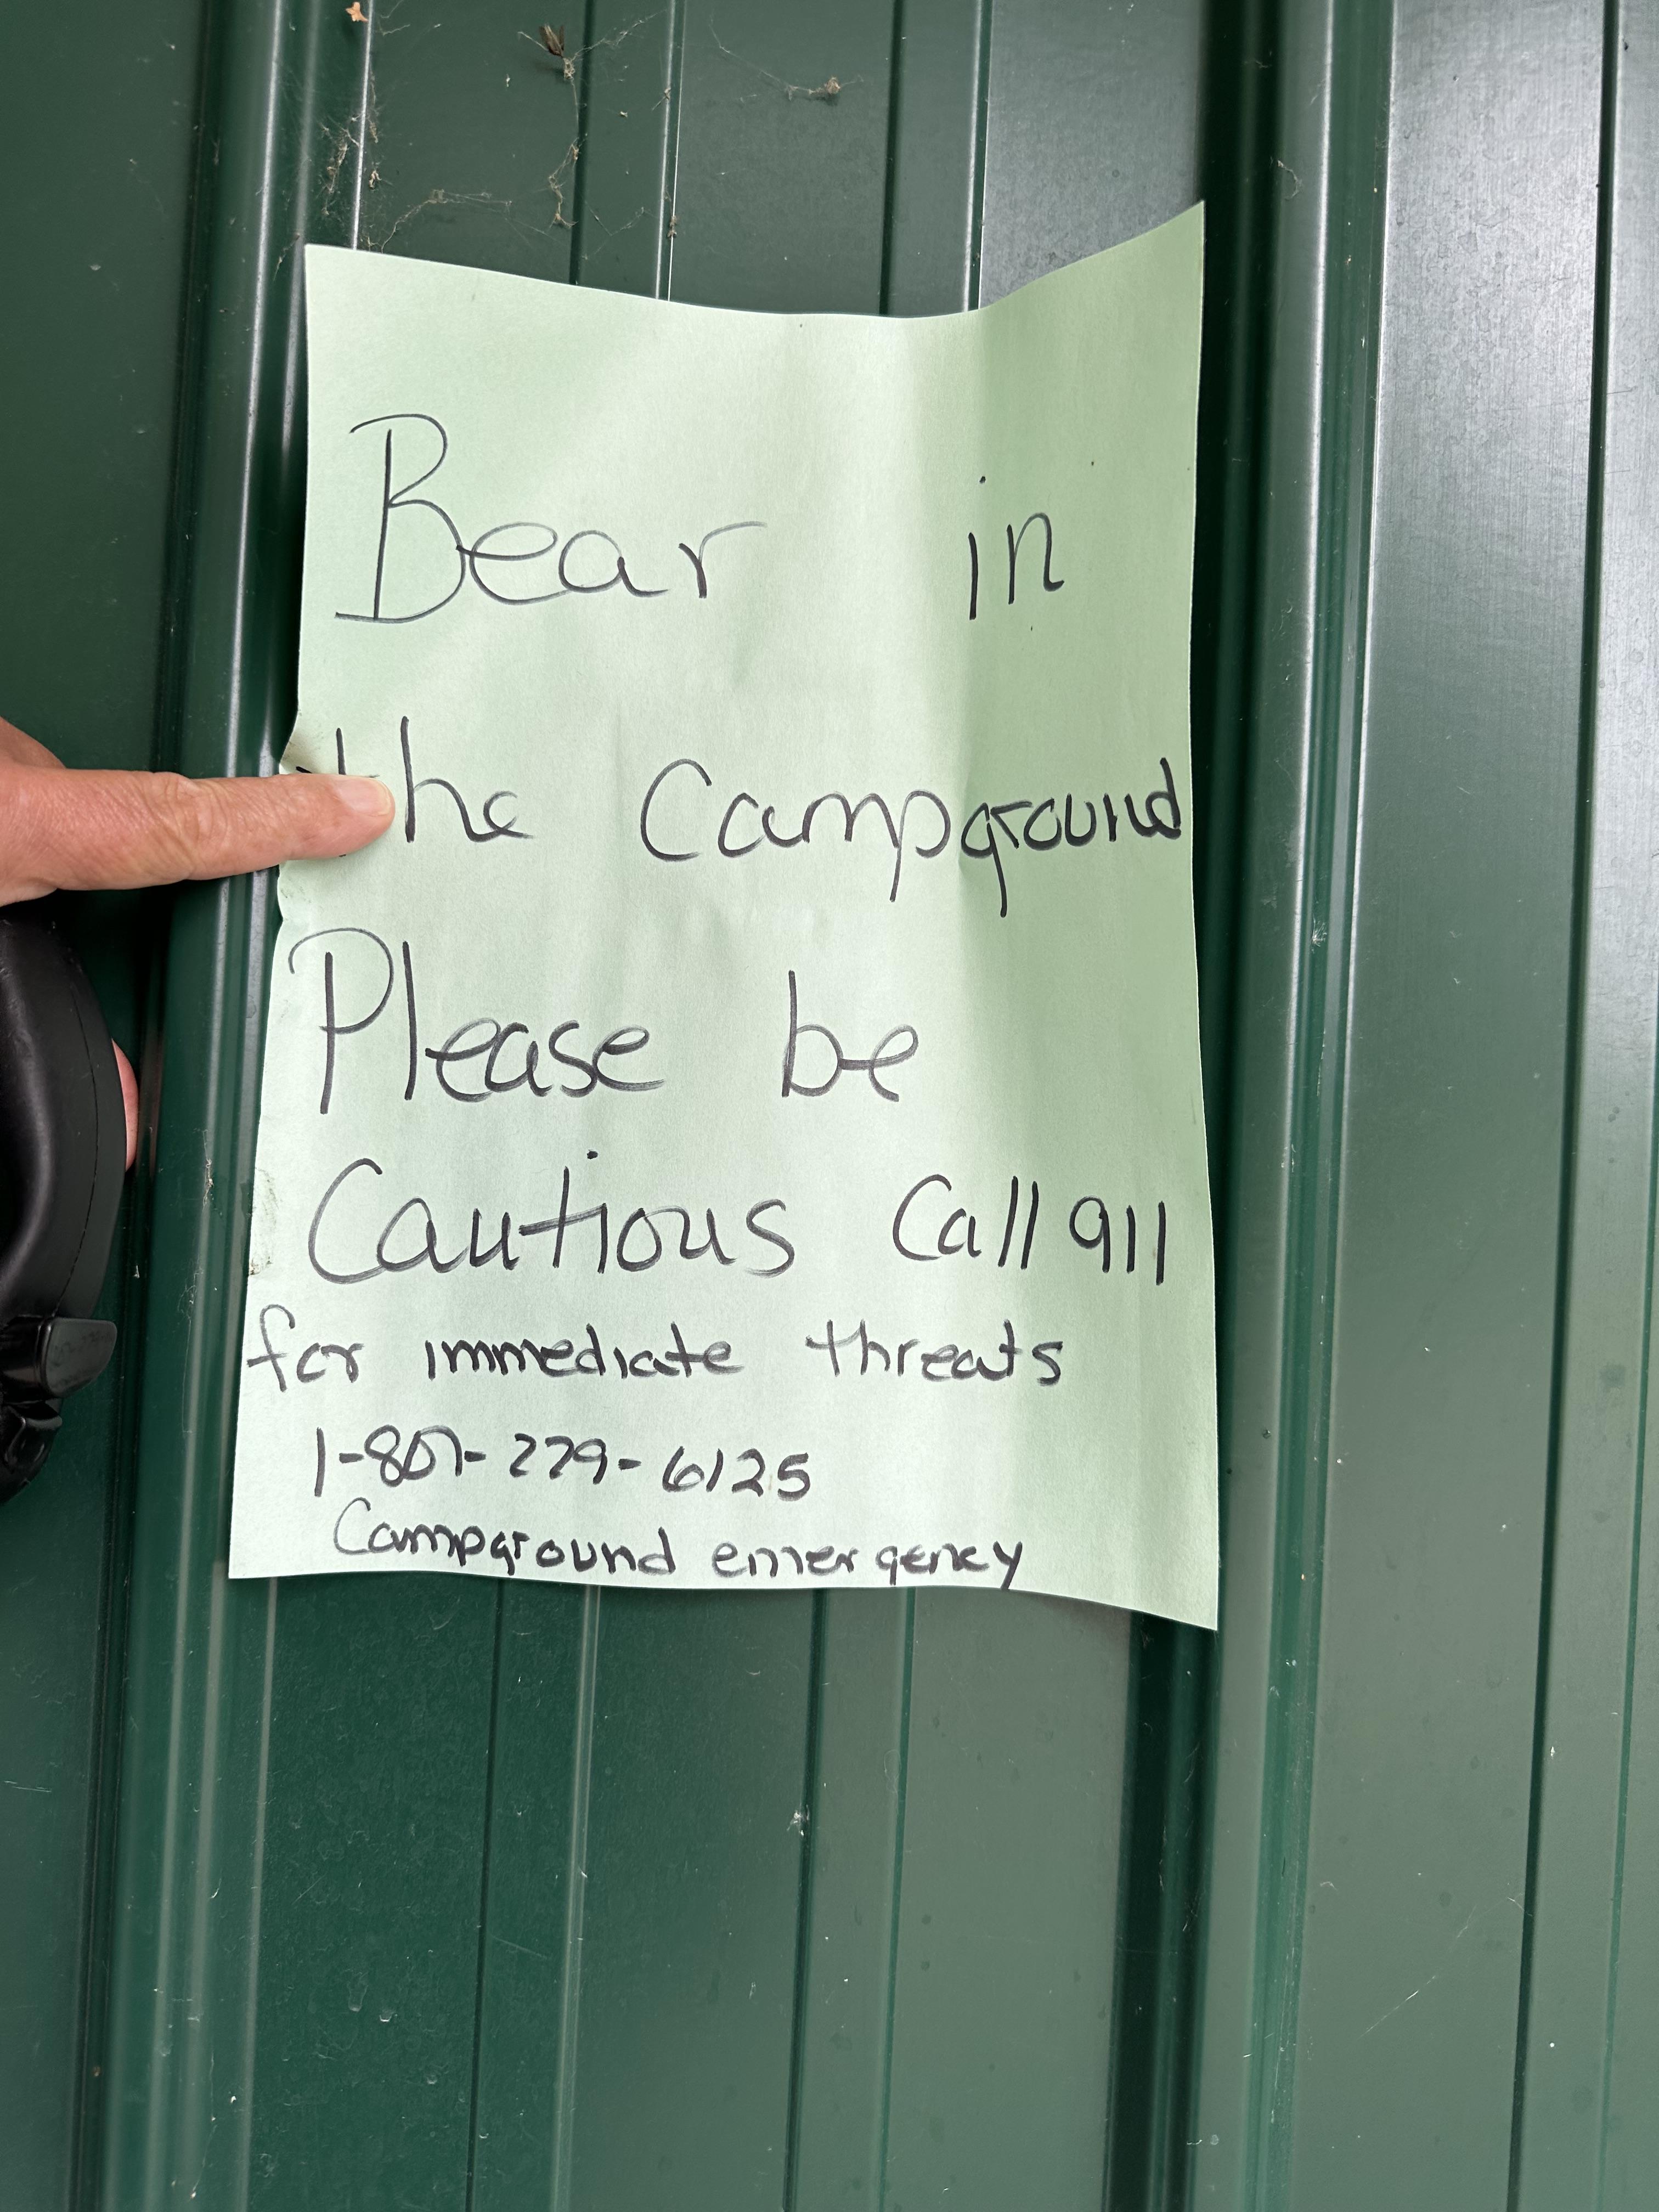 Bear in
the Campground
Please be
Cautious Call 911
for immediate threats
Campground emergency